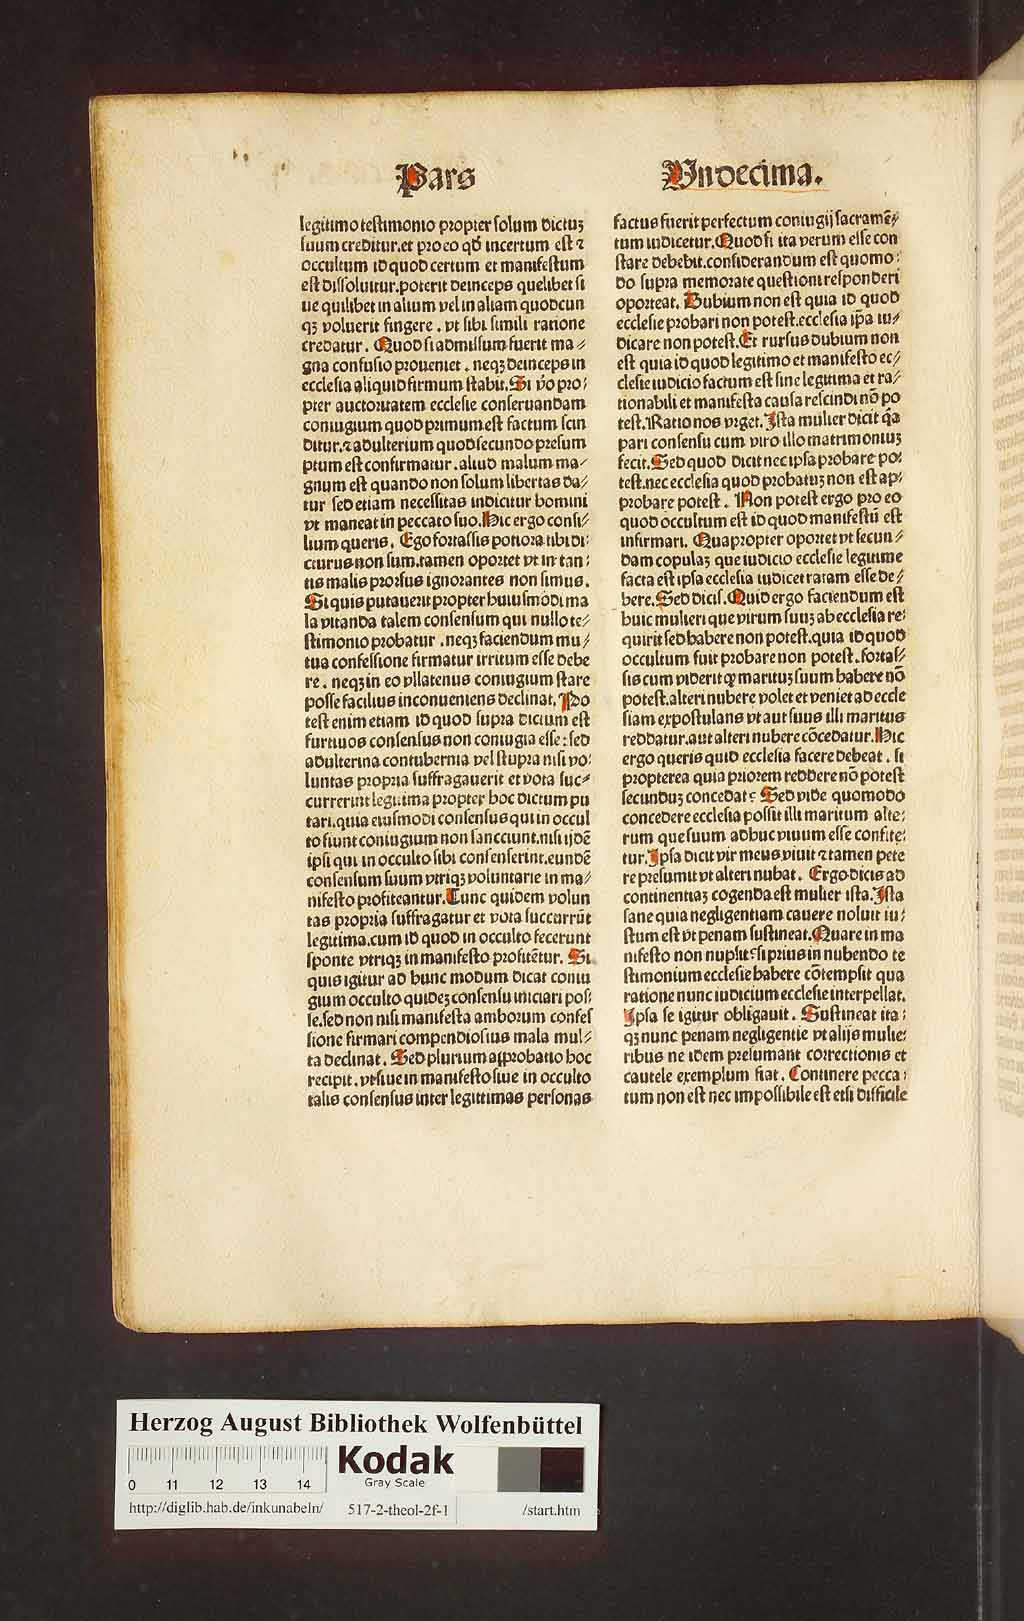 Pars
Vndecima.
legitimo testimonio propter solum dictuꝫ
suum creditur.et pro eo qđ incertum est ⁊
occultum id quod certum et manifestum
est dissoluitur.poterit deinceps quelibet si
ue quilibet in alium vel in aliam quodcun
qꝫ voluerit fingere . vt sibi simili ratione
credatur . Quod si admissum fuerit ma⸗
gna confusio proueniet . neqꝫ deinceps in
ecclesia aliquid firmum stabit. Si v̊o pro⸗
pter auctoritatem ecclesie conseruandam
coniugium quod primum est factum scin
ditur.⁊ adulterium quod secundo presum
ptum est confirmatur .aliud malum ma⸗
gnum est quando non solum libertas da⸗
tur sed etiam necessitas indicitur homini
vt maneat in peccato suo. Hic ergo consi⸗
lium queris . Ego fortassis potiora tibi di⸗
cturus non sum.tamen oportet vt in tan⸗
tis malis prorsus ignorantes non simus.
Si quis putauerit propter huiusmodi ma
la vitanda talem consensum qui nullo te⸗
stimonio probatur .neqꝫ faciendum mu⸗
tua confessione firmatur irritum esse debe
re . neqꝫ in eo vllatenus coniugium stare
posse facilius inconueniens declinat. Po
test enim etiam id quod supra dictum est
furtiuos consensus non coniugia esse:sed
adulterina contubernia vel stupra nisi vo⸗
luntas propria suffragauerit et vota suc⸗
currerint legitima propter hoc dictum pu
tari.quia eiusmodi consensus qui in occul
to fiunt coniugium non sanctiunt.nisi ijdē
ipsi qui in occulto sibi consenserint.eundē
consensum suum vtriqꝫ voluntarie in ma⸗
nifesto profiteantur. Tunc quidem volun
tas propria suffragatur et vota succurrūt
legitima.cum id quod in occulto fecerunt
sponte vtriqꝫ in manifesto profitētur. Si
quis igitur ad hunc modum dicat coniu
gium occulto quideꝫ consensu iniciari pos⸗
se.sed non nisi manifesta amborum confes
sione firmari compendiosius mala mul⸗
ta declinat. Sed plurium approbatio hoc
recipit .vt siue in manifesto siue in occulto
talis consensus inter legittimas personas
factus fuerit perfectum coniugij sacramē⸗
tum iudicetur. Quod si ita verum esse con
stare debebit.considerandum est quomo⸗
do supra memorate questioni responderi
oporteat. Dubium non est quia id quod
ecclesie probari non potest.ecclesia ip̄a iu⸗
dicare non potest. Et rursus dubium non
est quia id quod legitimo et manifesto ec⸗
clesie iudicio factum est sine legitima et ra⸗
tionabili et manifesta causa rescindi nō po
test. Ratio nos vrget. Ista mulier dicit q̄a
pari consensu cum viro illo matrimoniuꝫ
fecit. Sed quod dicit nec ipsa probare po⸗
test.nec ecclesia quod probatuꝫ non est ap⸗
probare potest . Non potest ergo pro eo
quod occultum est id quod manifestū est
infirmari. Quapropter oportet vt secun⸗
dam copulaꝫ que iudicio ecclesie legitime
facta est ipsa ecclesia iudicet ratam esse de⸗
bere. Sed dicis. Quid ergo faciendum est
huic mulieri que virum suuꝫ ab ecclesia re⸗
quirit sed habere non potest.quia id quod
occultum fuit probare non potest.fortas⸗
sis cum viderit ꝙ maritum suum habere nō
potest.alteri nubere volet et veniet ad eccle
siam expostulans vt aut suus illi maritus
reddatur.aut alteri nubere cōcedatur. Hic
ergo queris quid ecclesia facere debeat . si
propterea quia priorem reddere nō potest
secunduꝫ concedat: Sed vide quomodo
concedere ecclesia possit illi maritum alte⸗
rum que suum adhuc viuum esse confite⸗
tur. Ipsa dicit vir meus viuit ⁊ tamen pete
re presumit vt alteri nubat . Ergo dicis ad
continentiaꝫ cogenda est mulier ista. Ista
sane quia negligentiam cauere noluit iu⸗
stum est vt penam sustineat. Quare in ma
nifesto non nupsit: si prius in nubendo te
stimonium ecclesie habere cōtempsit qua
ratione nunc iudicium ecclesie interpellat.
Ipsa se igitur obligauit . Sustineat ita⸗
qꝫ nunc penam negligentie vt alijs mulie⸗
ribus ne idem presumant correctionis et
cautele exemplum fiat. Continere pecca⸗
tum non est nec impossibile est etsi difficile
Herzog August Bibliothek Wolfenbüttel
Kodak
Gray Scale
0 11 12 13 14
http://diglib.hab.de/inkunabeln/ 517-2-theol-2f-1 /start.htm